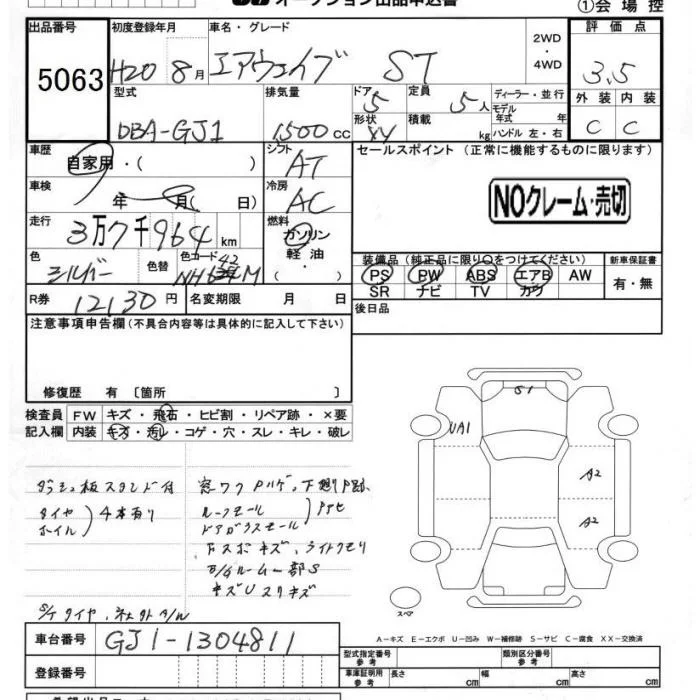 オークション出品申込書
①会場控
出品番号
5063
初度登録年月
H20 8月
車名・グレード
エアウェイブ ST
2WD
・
4WD
評価点
3.5
外装 内装
C C
型式
DBA-GJ1
排気量
1500 cc
ドア
5
形状
XY
定員
5人
積載
kg
ディーラー・並行
モデル
年式 年
ハンドル 左・右
車歴
自家用・( )
シフト
AT
セールスポイント (正常に機能するものに限ります)
NOクレーム・売切
車検
年 月( 日)
冷房
AC
走行
3万7千964 km
燃料
ガソリン
軽油
・( )
色
シルバー
色替
色コード
42
NH M
装備品(純正品に限り○をつけてください)
PS PW ABS エアB AW
SR ナビ TV カワ
新車保証書
有・無
R券
12130円
名変期限 月 日
後日品
注意事項申告欄(不具合内容等は具体的に記入して下さい)
修復歴 有 〔箇所 〕
検査員
記入欄
FW キズ・飛石・ヒビ割・リペア跡・×要
内装 キズ・汚レ・コゲ・穴・スレ・キレ・破レ
S1
UA1
A2
A2
スペア
ダッシュ板スタンド付
タイヤ
ホイル
4本有り
窓ワク
ルーフモール
ドアガラスモール
下スポキズ、ライトクモリ
ルーム一部S
キズUスリキズ
S/Tタイヤ、社外A/W
A−キズ E−エクボ U−凹み W−補修跡 S−サビ C−腐食 XX−交換済
車台番号
GJ1-1304811
登録番号
型式指定番号
参考
類別区分番号
参考
車庫証明用
参考
長さ cm 幅 cm 高さ cm